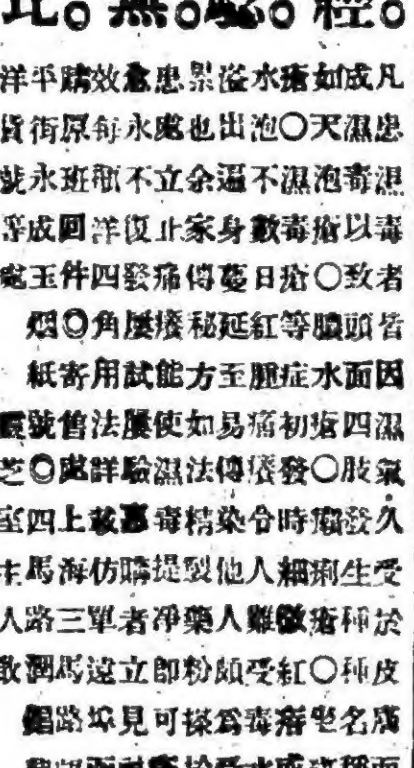 經。驗。無。此。
凡患濕毒者皆因濕氣久受於皮膚而
成濕毒以致頭面四肢發生種種名稱
如天泡瘡〇膿水瘡〇爛痢瘡〇坐
瘡〇濕毒瘡等症初發時細微紅痱
水泡不數日紅腫痛癢令人難受毒水
溢出逼身蔓延至易傳染他人頗爲
累也余家傳秘方如法精製藥粉搽
患處立止痛癢能使濕毒提淨即可
愈永不復發屢試屢驗惠購者立見
效每瓶洋四角用法詳載仿單遠埠
購原班回件◎寄舊處上海三馬路
平街永成玉烟紙號◎四馬路潤錩
洋貨號等處靈芝室主人敬